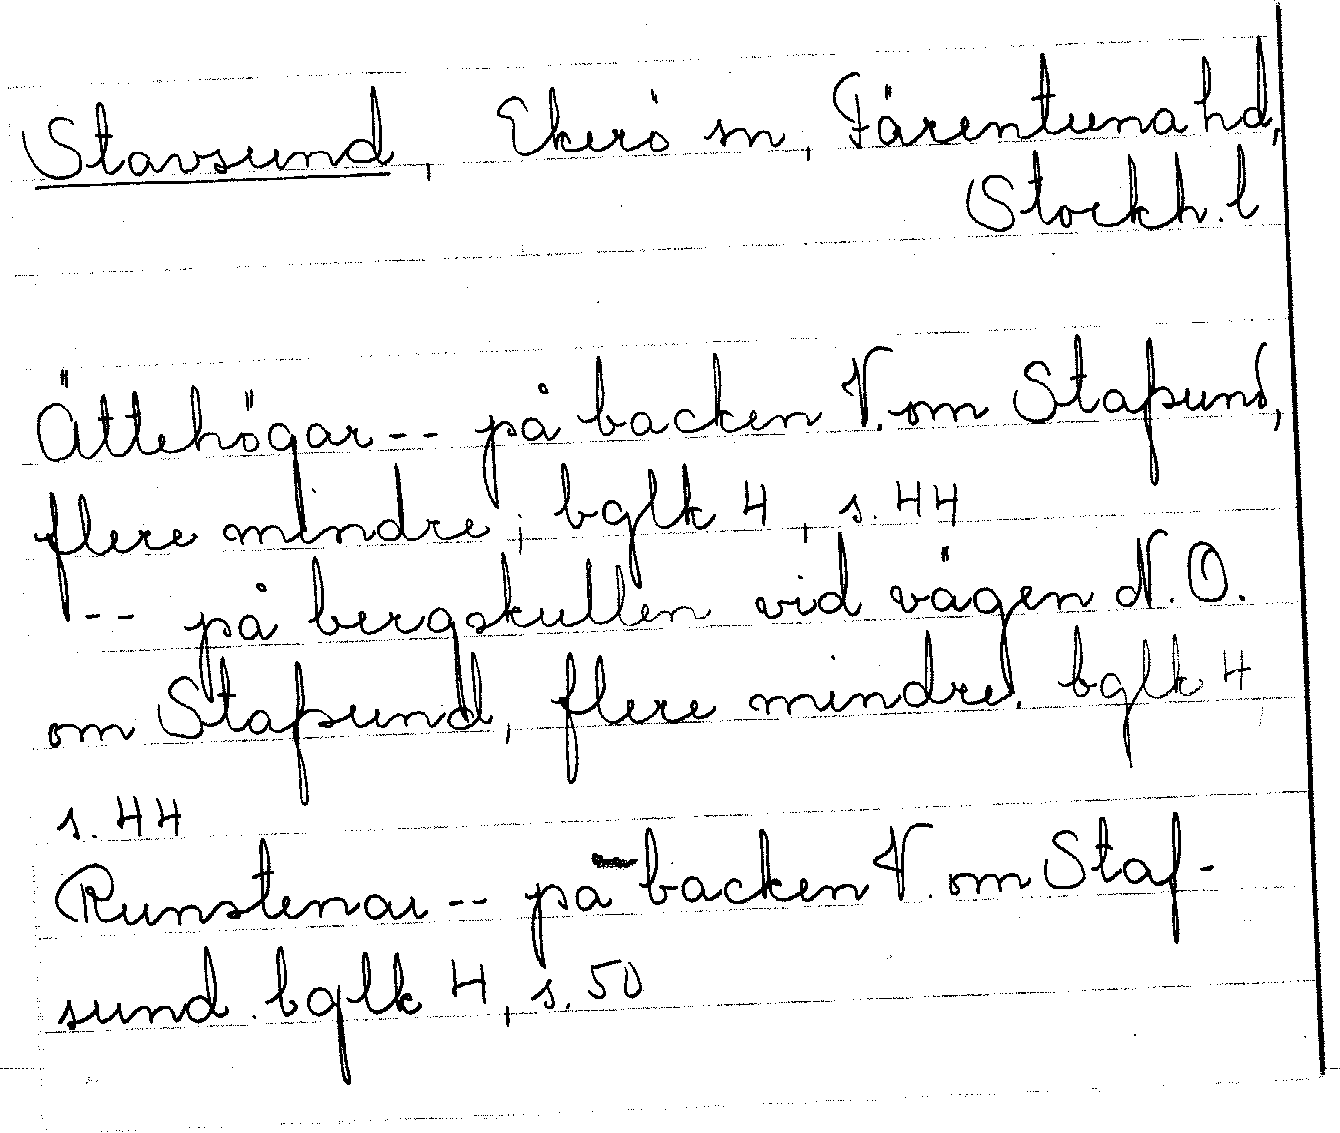 Stavsund, Ekerö sn, Färentuna hd,
Stockh. l
Ättehögar -- på backen V. om Stafsund,
flere mindre; bglk 4, s. 44
-- på bergskullen vid vägen N.O.
om Stafsund, flere mindre. bglk 4
s. 44
Runstenar -- på backen V. om Staf-
sund. bglk 4, s. 50